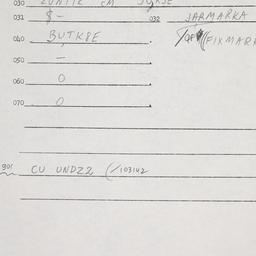 030
031 $ - 032 JARMARKA
040 BUTKÉE . (FIXMARK
050 — .
060 0 .
070 0 .
901 CU UNDZZ (/103142